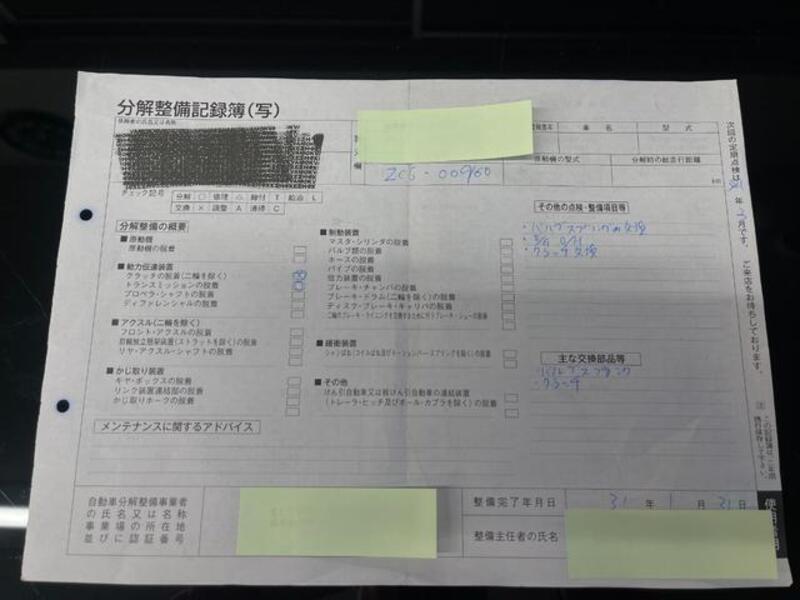 分解整備記録簿(写)
依頼者の氏名又は名称
車名
型式
原動機の型式
分解時の総走行距離
km
ZC6-00960
チェック記号
分解 ○ 修理 △ 締付 T 給油 L
交換 × 調整 A 清掃 C
分解整備の概要
■原動機
原動機の脱着
■動力伝達装置
クラッチの脱着(二輪を除く)
トランスミッションの脱着
プロペラ・シャフトの脱着
ディファレンシャルの脱着
■アクスル(二輪を除く)
フロント・アクスルの脱着
前輪独立懸架装置(ストラットを除く)の脱着
リヤ・アクスル・シャフトの脱着
■かじ取り装置
ギヤ・ボックスの脱着
リンク装置連結部の脱着
かじ取りホークの脱着
■制動装置
マスタ・シリンダの脱着
バルブ類の脱着
ホースの脱着
パイプの脱着
倍力装置の脱着
ブレーキ・チャンバの脱着
ブレーキ・ドラム(二輪を除く)の脱着
ディスク・ブレーキ・キャリパの脱着
二輪のブレーキ・ライニングを交換するために行うブレーキ・シューの脱着
■緩衝装置
シャシばね(コイルばね及びトーションバースプリングを除く)の脱着
■その他
けん引自動車又は被けん引自動車の連結装置
(トレーラ・ヒッチ及びボール・カプラを除く)の脱着
その他の点検・整備項目等
・バルブスプリング 交換
・クラッチ 交換
主な交換部品等
・バルブスプリング
・クラッチ
メンテナンスに関するアドバイス
自動車分解整備事業者
の氏名又は名称
事業場の所在地
並びに認証番号
整備完了年月日
31年1月31日
整備主任者の氏名
次回の定期点検は
年3月です。ご来店をお待ちしております。